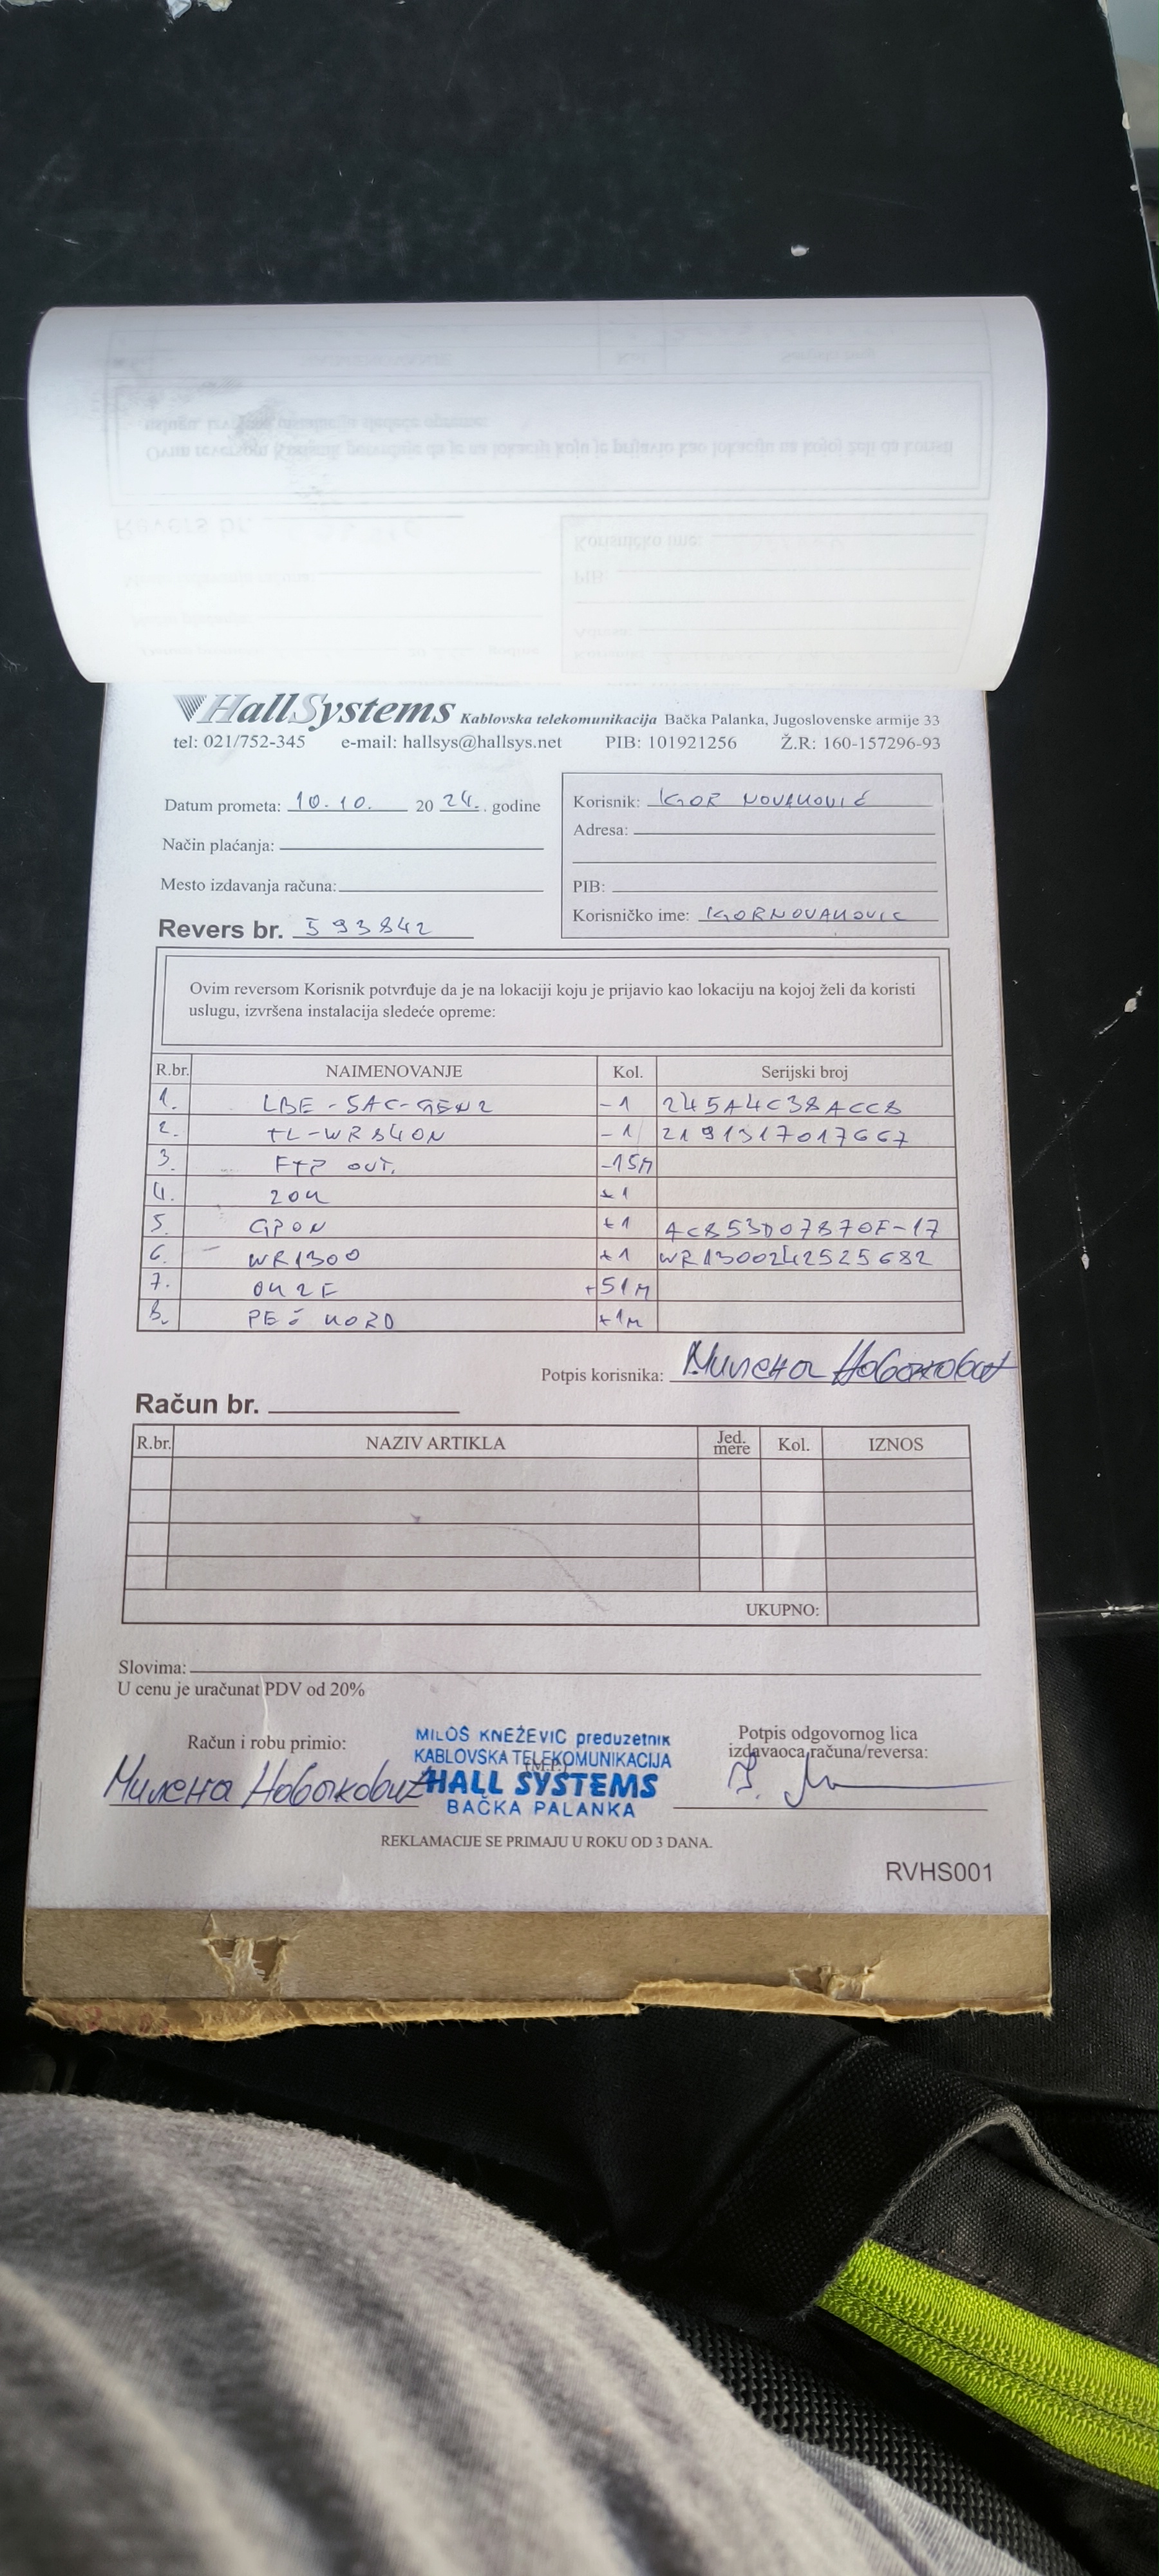 HallSystems Kablovska telekomunikacija Bačka Palanka, Jugoslovenske armije 33
tel: 021/752-345 e-mail: hallsys@hallsys.net PIB: 101921256 Ž.R: 160-157296-93
Datum prometa: 10.10. 20 24. godine
Način plaćanja:
Mesto izdavanja računa:
Revers br. 593842
Korisnik: IGOR NOVAKOVIĆ
Adresa:
PIB:
Korisničko ime: IGORNOVAKOVIC
Ovim reversom Korisnik potvrđuje da je na lokaciji koju je prijavio kao lokaciju na kojoj želi da koristi
uslugu, izvršena instalacija sledeće opreme:
R.br. NAIMENOVANJE Kol. Serijski broj
1. LBE-5AC-GEN2 -1 245A4C38ACC8
2. TL-WR840N -1 2191317017667
3. FTP OUT. -15M
4. ZOK +1
5. GPON +1 ACB53D07870F-17
6. WR1300 +1 WR1300242525682
7. OK2F +51M
8. +1M
Potpis korisnika: Милена Новаковић
Račun br.
R.br. NAZIV ARTIKLA Jed. mere Kol. IZNOS
UKUPNO:
Slovima:
U cenu je uračunat PDV od 20%
Račun i robu primio:
Милена Новаковић
MILOŠ KNEŽEVIĆ preduzetnik
KABLOVSKA TELEKOMUNIKACIJA
(M.P.)
HALL SYSTEMS
BAČKA PALANKA
Potpis odgovornog lica
izdavaoca računa/reversa:
REKLAMACIJE SE PRIMAJU U ROKU OD 3 DANA.
RVHS001